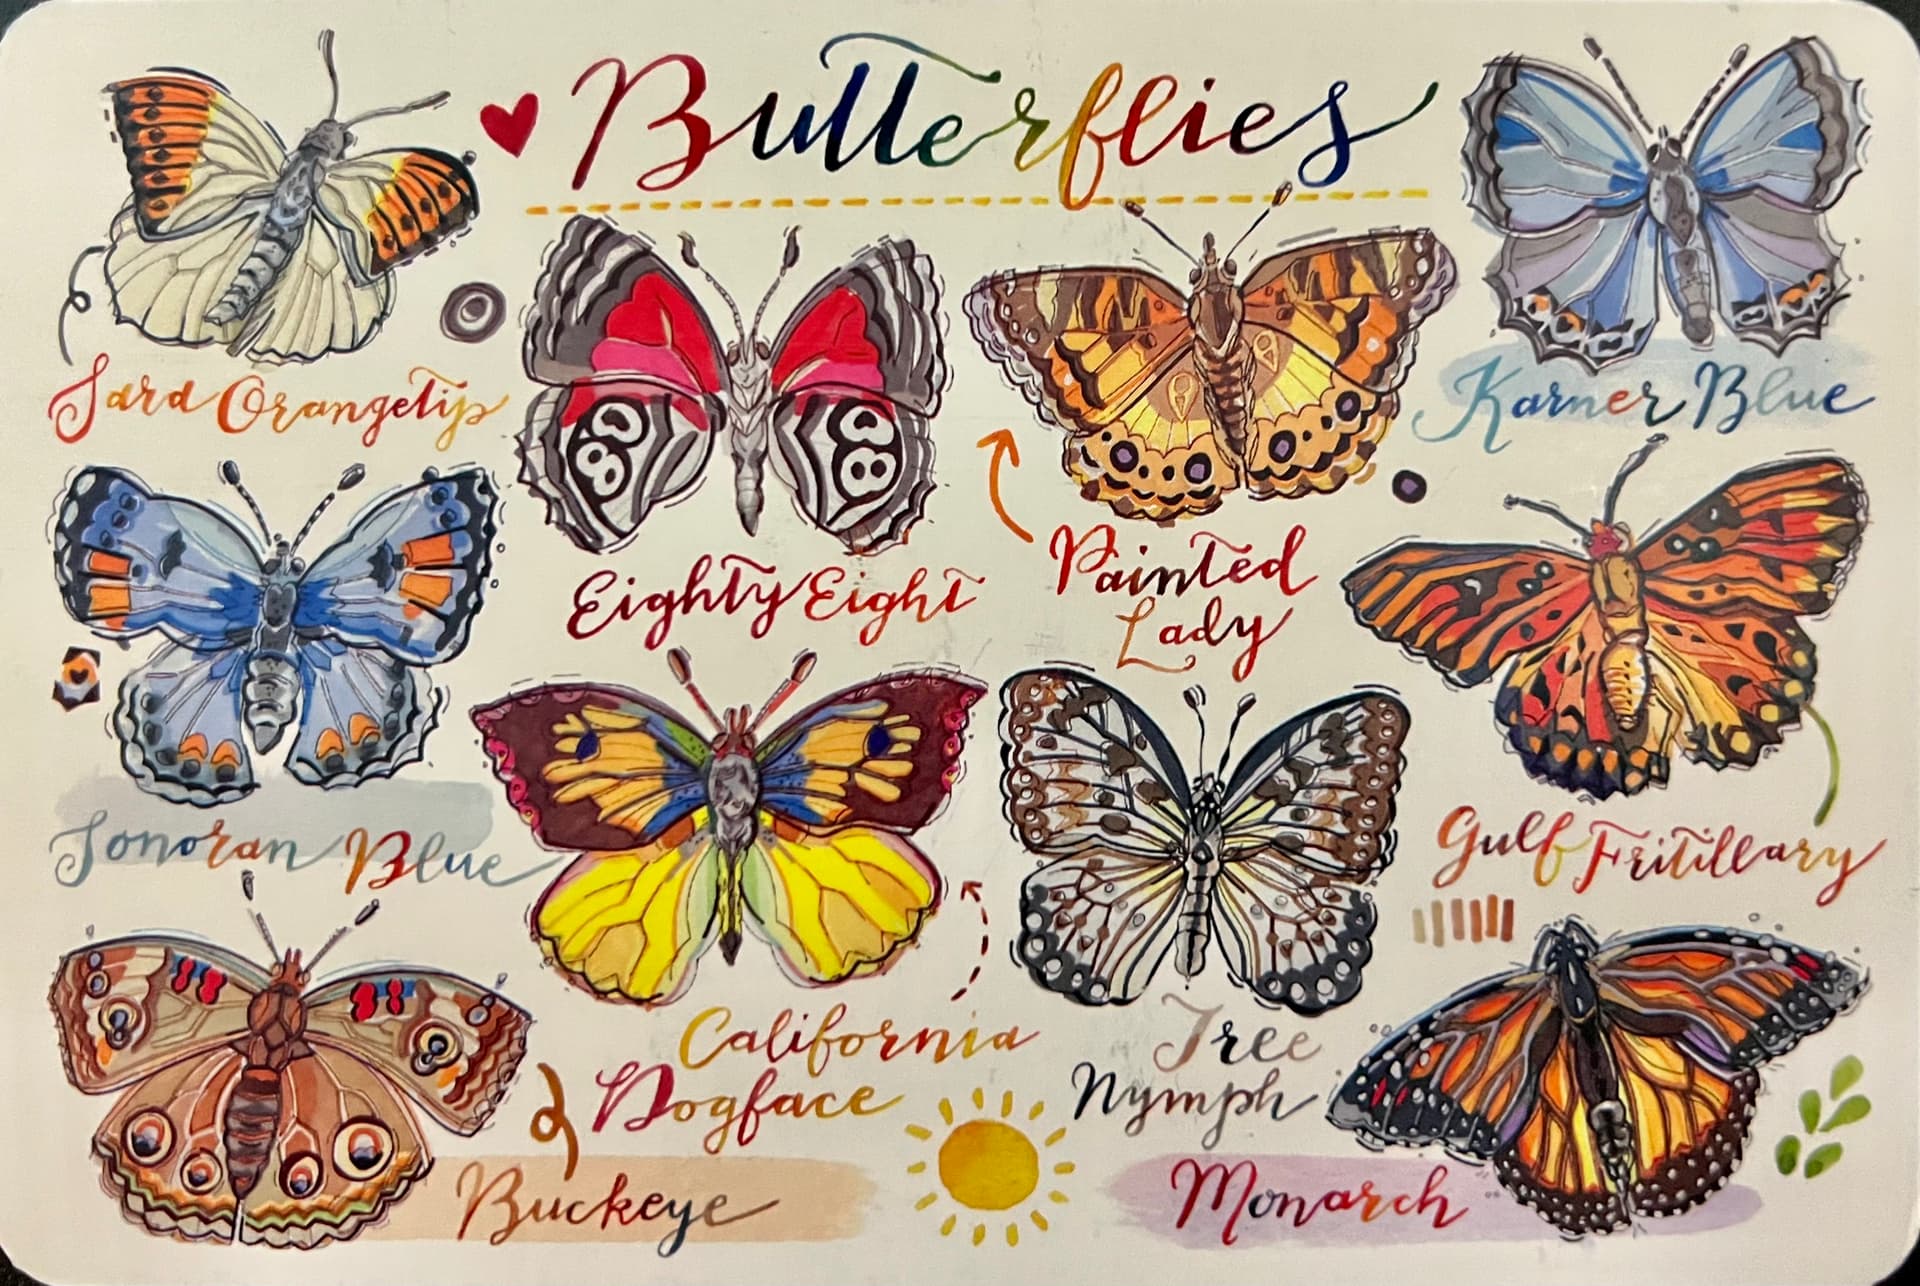 Butterflies
Sard Orangetip
Karner Blue
Eighty Eight
Painted
Lady
Sonoran Blue
Gulf Fritillary
California
Dogface
Tree
Nymph
Buckeye
Monarch